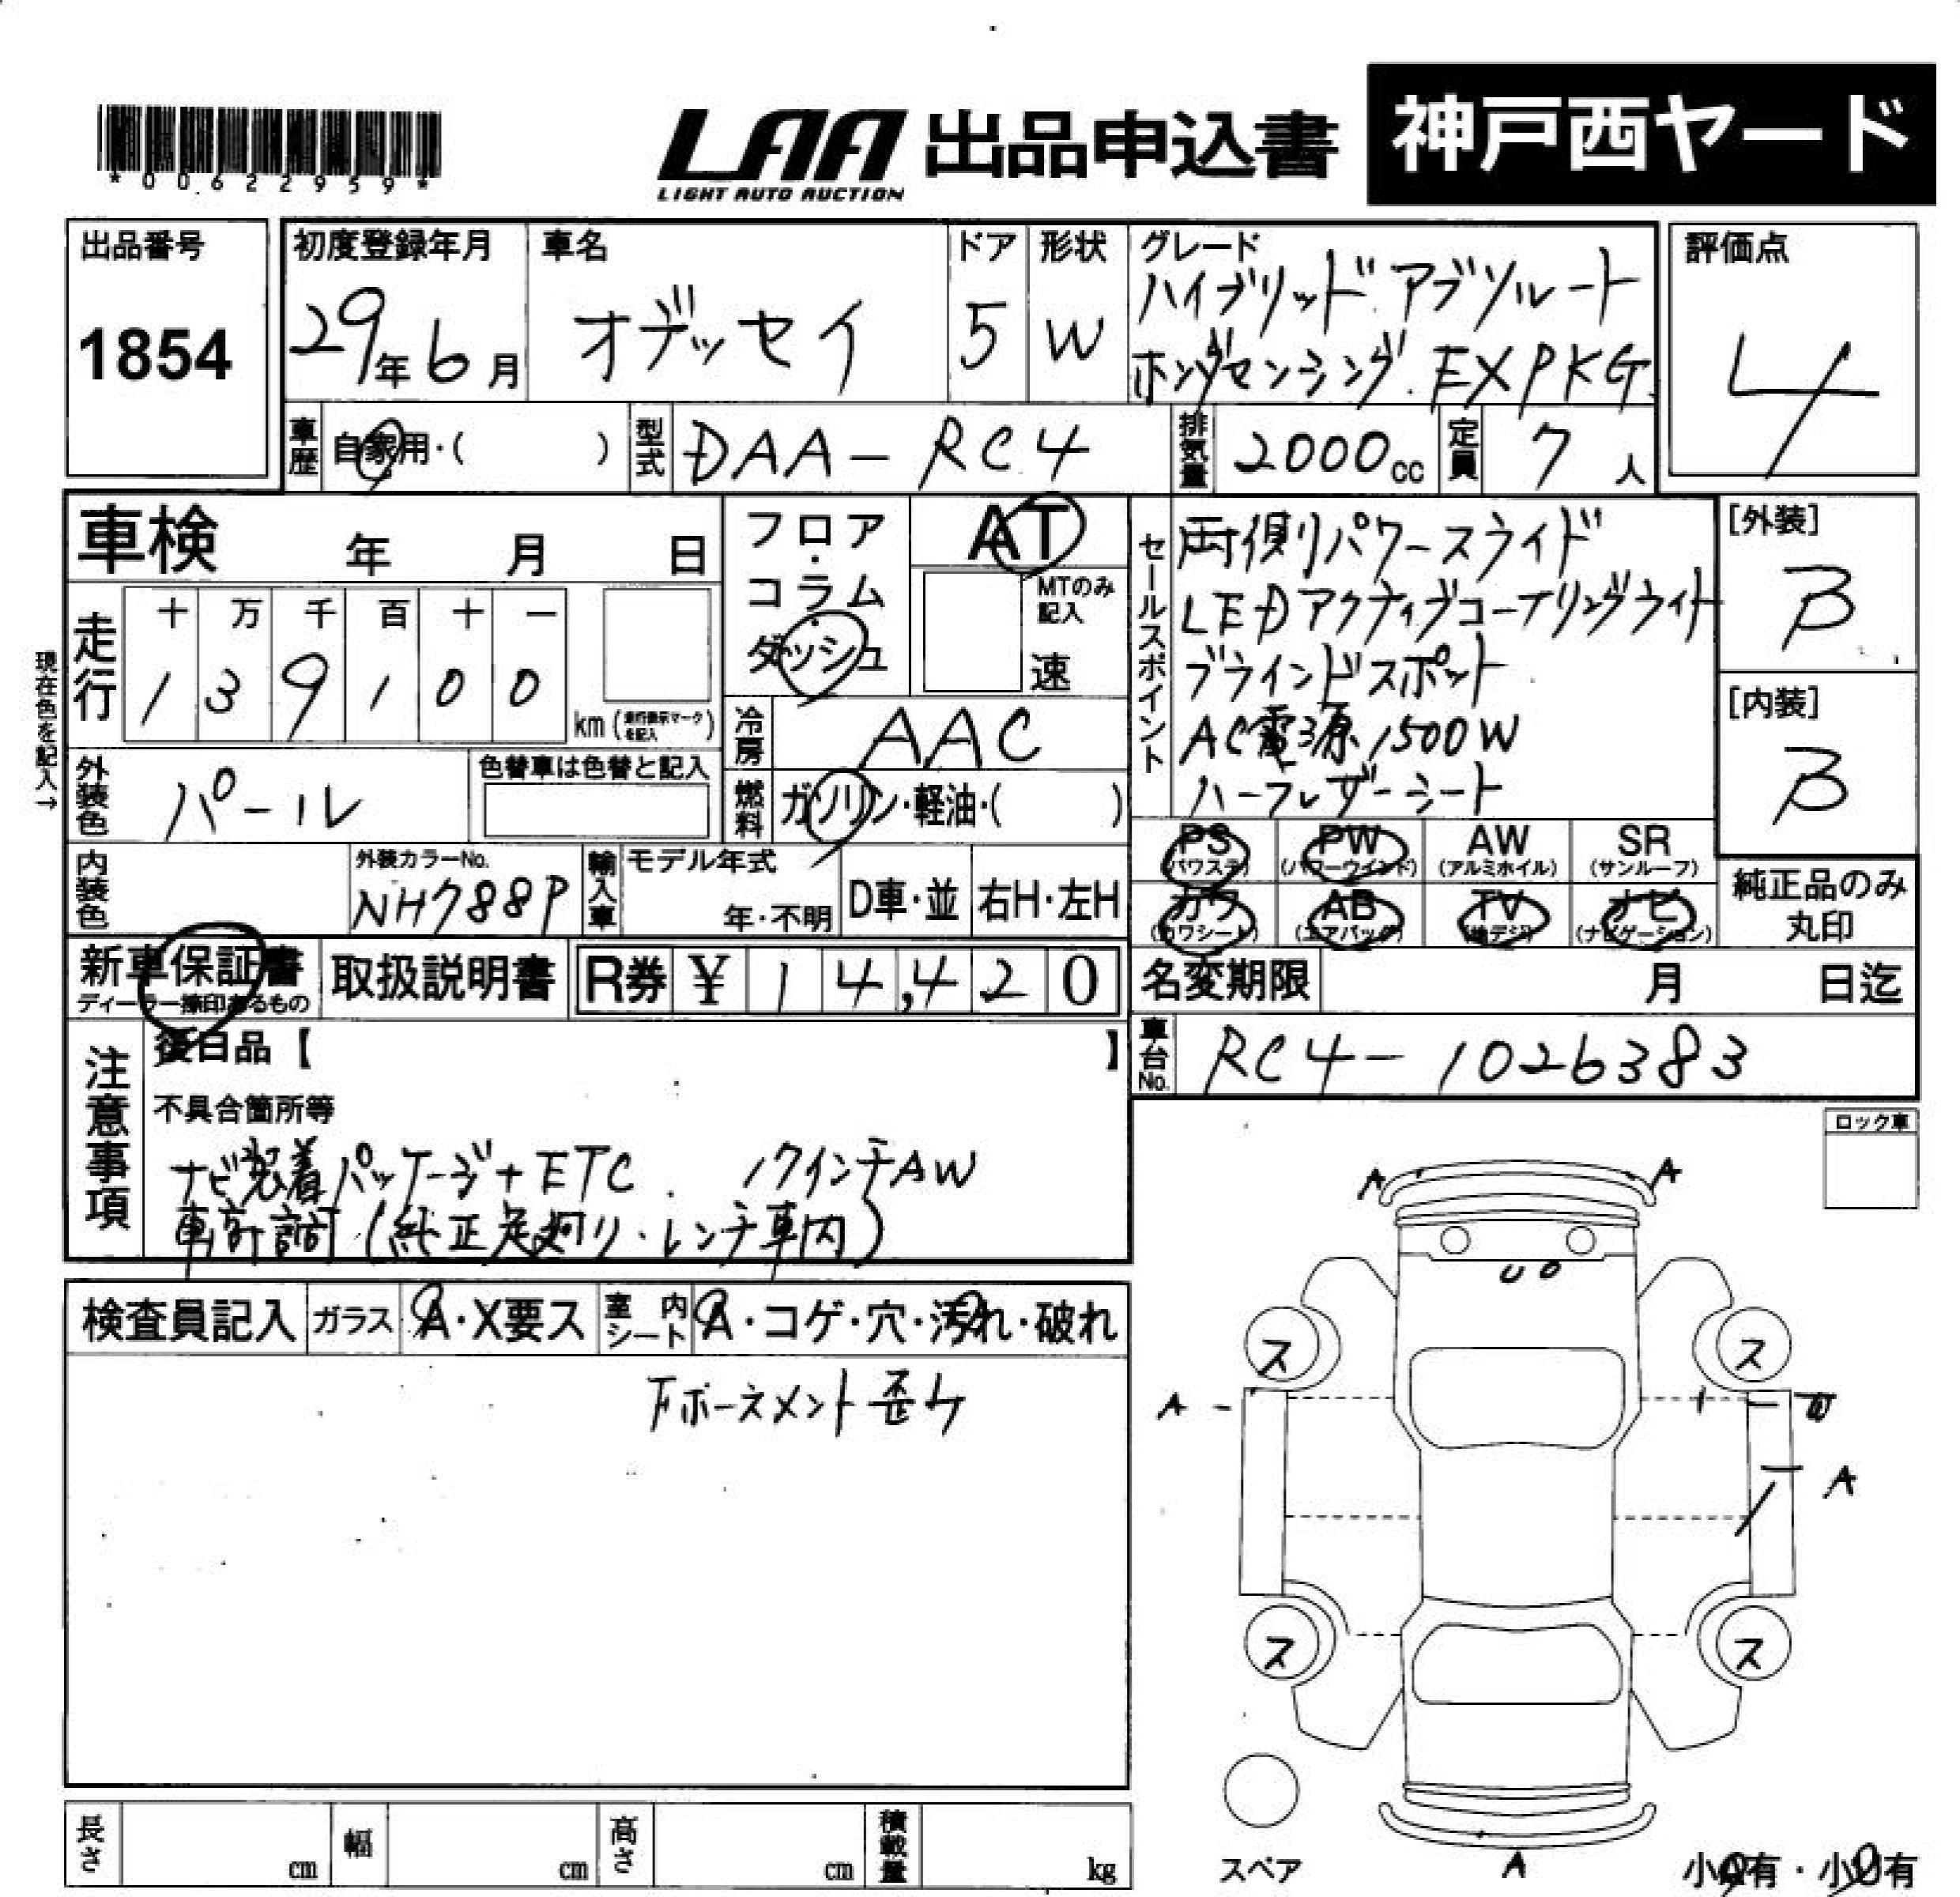 *00622959*
LAA 出品申込書 神戸西ヤード
LIGHT AUTO AUCTION
出品番号
1854
初度登録年月
29年6月
車名
オデッセイ
ドア
5
形状
W
グレード
ハイブリッド.アブソルート
ホンダセンシング.EXPKG
評価点
4
車歴 自家用・( )
型式 DAA-RC4
排気量 2000cc
定員 7人
車検 年 月 日
フロア・コラム・ダッシュ
AT
MTのみ記入
速
セールスポイント
両側パワースライド
LEDアクティブコーナリングライト
ブラインドスポット
AC電源1500W
ハーフレザーシート
[外装]
B
[内装]
B
現在色を記入→
走行
十 万 千 百 十 一
1 3 9 1 0 0
km (走行表示マークを記入)
冷房 AAC
外装色 パール
色替車は色替と記入
燃料 ガソリン・軽油・( )
PS (パワステ) PW (パワーウインド) AW (アルミホイル) SR (サンルーフ)
カワ (カワシート) AB (エアバッグ) TV (地デジ) ナビ (ナビゲーション)
純正品のみ丸印
内装色
外装カラーNo.
NH788P
輸入車
モデル年式
年・不明
D車・並
右H・左H
新車保証書
ディーラー捺印あるもの
取扱説明書
R券 ¥ 14,420
名変期限 月 日迄
車台No. RC4-1026383
注意事項
後日品【 】
不具合箇所等
ナビ装着パッケージ+ETC. 17インチAW
車高調(純正足廻り・レンチ車内)
ロック車
検査員記入 ガラス A・X要ス 室内シート A・コゲ・穴・汚れ・破れ
Fホースメント歪ケ
A A
U
ス ス
A W
A
ス ス
スペア
A
小A有・小U有
長さ cm 幅 cm 高さ cm 積載量 kg